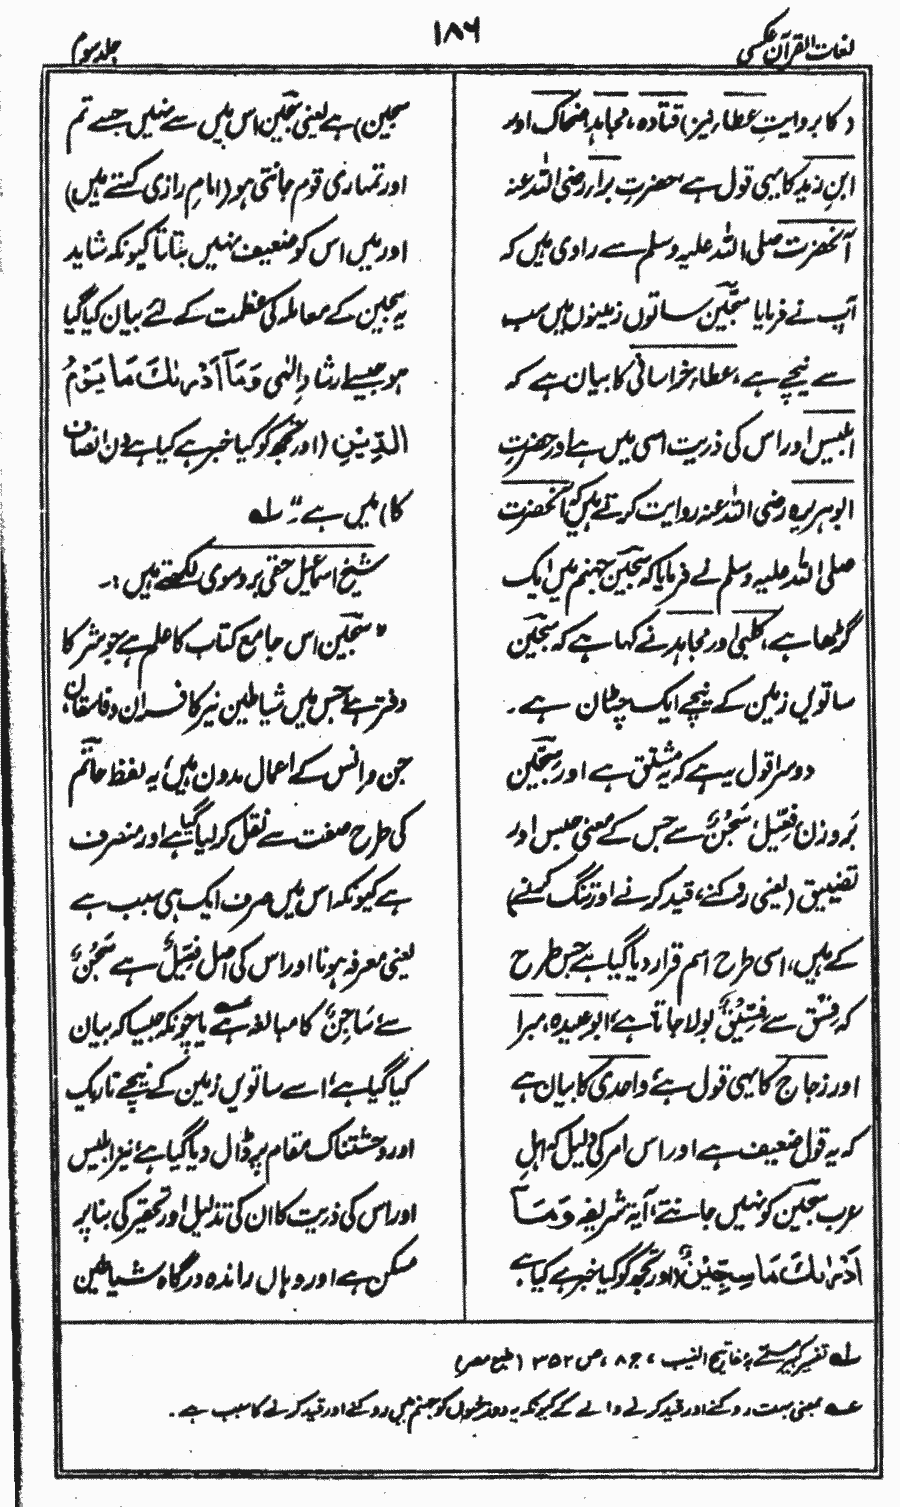 لغات القرآن عکسی
۱۸۶
جلد سوم
(کا بروایتِ عطاء، نیز) قتادہ، مجاہد، ضحاک اور
ابن زید کا یہی قول ہے حضرت براء رضی اللہ عنہ
آنحضرت صلی اللہ علیہ وسلم سے راوی ہیں کہ
آپ نے فرمایا سجّین ساتوں زمینوں میں سب
سے نیچے ہے، عطاء خراسانی کا بیان ہے کہ
ابلیس اور اس کی ذریت اسی میں ہے اور حضرت
ابوہریرہ رضی اللہ عنہ روایت کرتے ہیں کہ آنحضرت
صلی اللہ علیہ وسلم نے فرمایا کہ سجین جہنم میں ایک
گڑھا ہے، کلبی اور مجاہد نے کہا ہے کہ سجین
ساتویں زمین کے نیچے ایک چٹان ہے۔
دوسرا قول یہ ہے کہ یہ مشتق ہے اور سِجّین
بروزن فِعّیل سَجْنٌ سے جس کے معنی حبس اور
تضییق (یعنی روکنے، قید کرنے اور تنگ کرنے)
کے ہیں، اسی طرح اسم قرار دیا گیا ہے جس طرح
کہ فسق سے فِسّیق بولا جاتا ہے، ابو عبیدہ، مبرد
اور زجاج کا یہی قول ہے، واحدی کا بیان ہے
کہ یہ قول ضعیف ہے اور اس امر کی دلیل کہ اہلِ
عرب سجین کو نہیں جانتے، آیۃ شریفہ وَمَآ
اَدْرٰىكَ مَا سِجِّيْنٌ (اور تجھ کو کیا خبر ہے کیا ہے
سجین) ہے یعنی سجین اس میں سے نہیں جسے تم
اور تمہاری قوم جانتی ہو (امامِ رازی کہتے ہیں)
اور میں اس کو ضعیف نہیں بتاتا کیونکہ شاید
یہ سجین کے معاملہ کی عظمت کے لئے بیان کیا گیا
ہو جیسے ارشادِ الٰہی وَمَآ اَدْرٰىكَ مَا يَوْمُ
الدِّيْنِ (اور تجھ کو کیا خبر ہے کیا ہے دن انصاف
کا) میں ہے"۔ لہ
شیخ اسماعیل حقی بروسوی لکھتے ہیں:۔
"سجین اس جامع کتاب کا علم ہے جو شر کا
دفتر ہے جس میں شیاطین نیز کافران و فاسقان،
جن و انس کے اعمال مدون ہیں، یہ لفظ حاتم
کی طرح صفت سے نقل کر لیا گیا ہے اور منصرف
ہے کیونکہ اس میں صرف ایک ہی سبب ہے
یعنی معرفہ ہونا اور اس کی اصل فِعّیلٌ ہے سَجْنٌ
سے، سَاجِنٌ کا مبالغہ ہے یا چونکہ جیسا کہ بیان
کیا گیا ہے، اسے ساتویں زمین کے نیچے تاریک
اور وحشتناک مقام پر ڈال دیا گیا ہے، نیز ابلیس
اور اس کی ذریت کا ان کی تذلیل اور تحقیر کی بنا پر
مسکن ہے اور وہاں راندہ درگاہ شیاطین
لہ تفسیر کبیر مسمّے بہ مفاتیح الغیب، ج ۸، ص ۳۵۲ (طبع مصر)
عہ بمعنی بہت روکنے اور قید کرنے والے کے کیونکہ یہ دوزخیوں کو جہنم میں روکنے اور قید کرنے کا سبب ہے۔